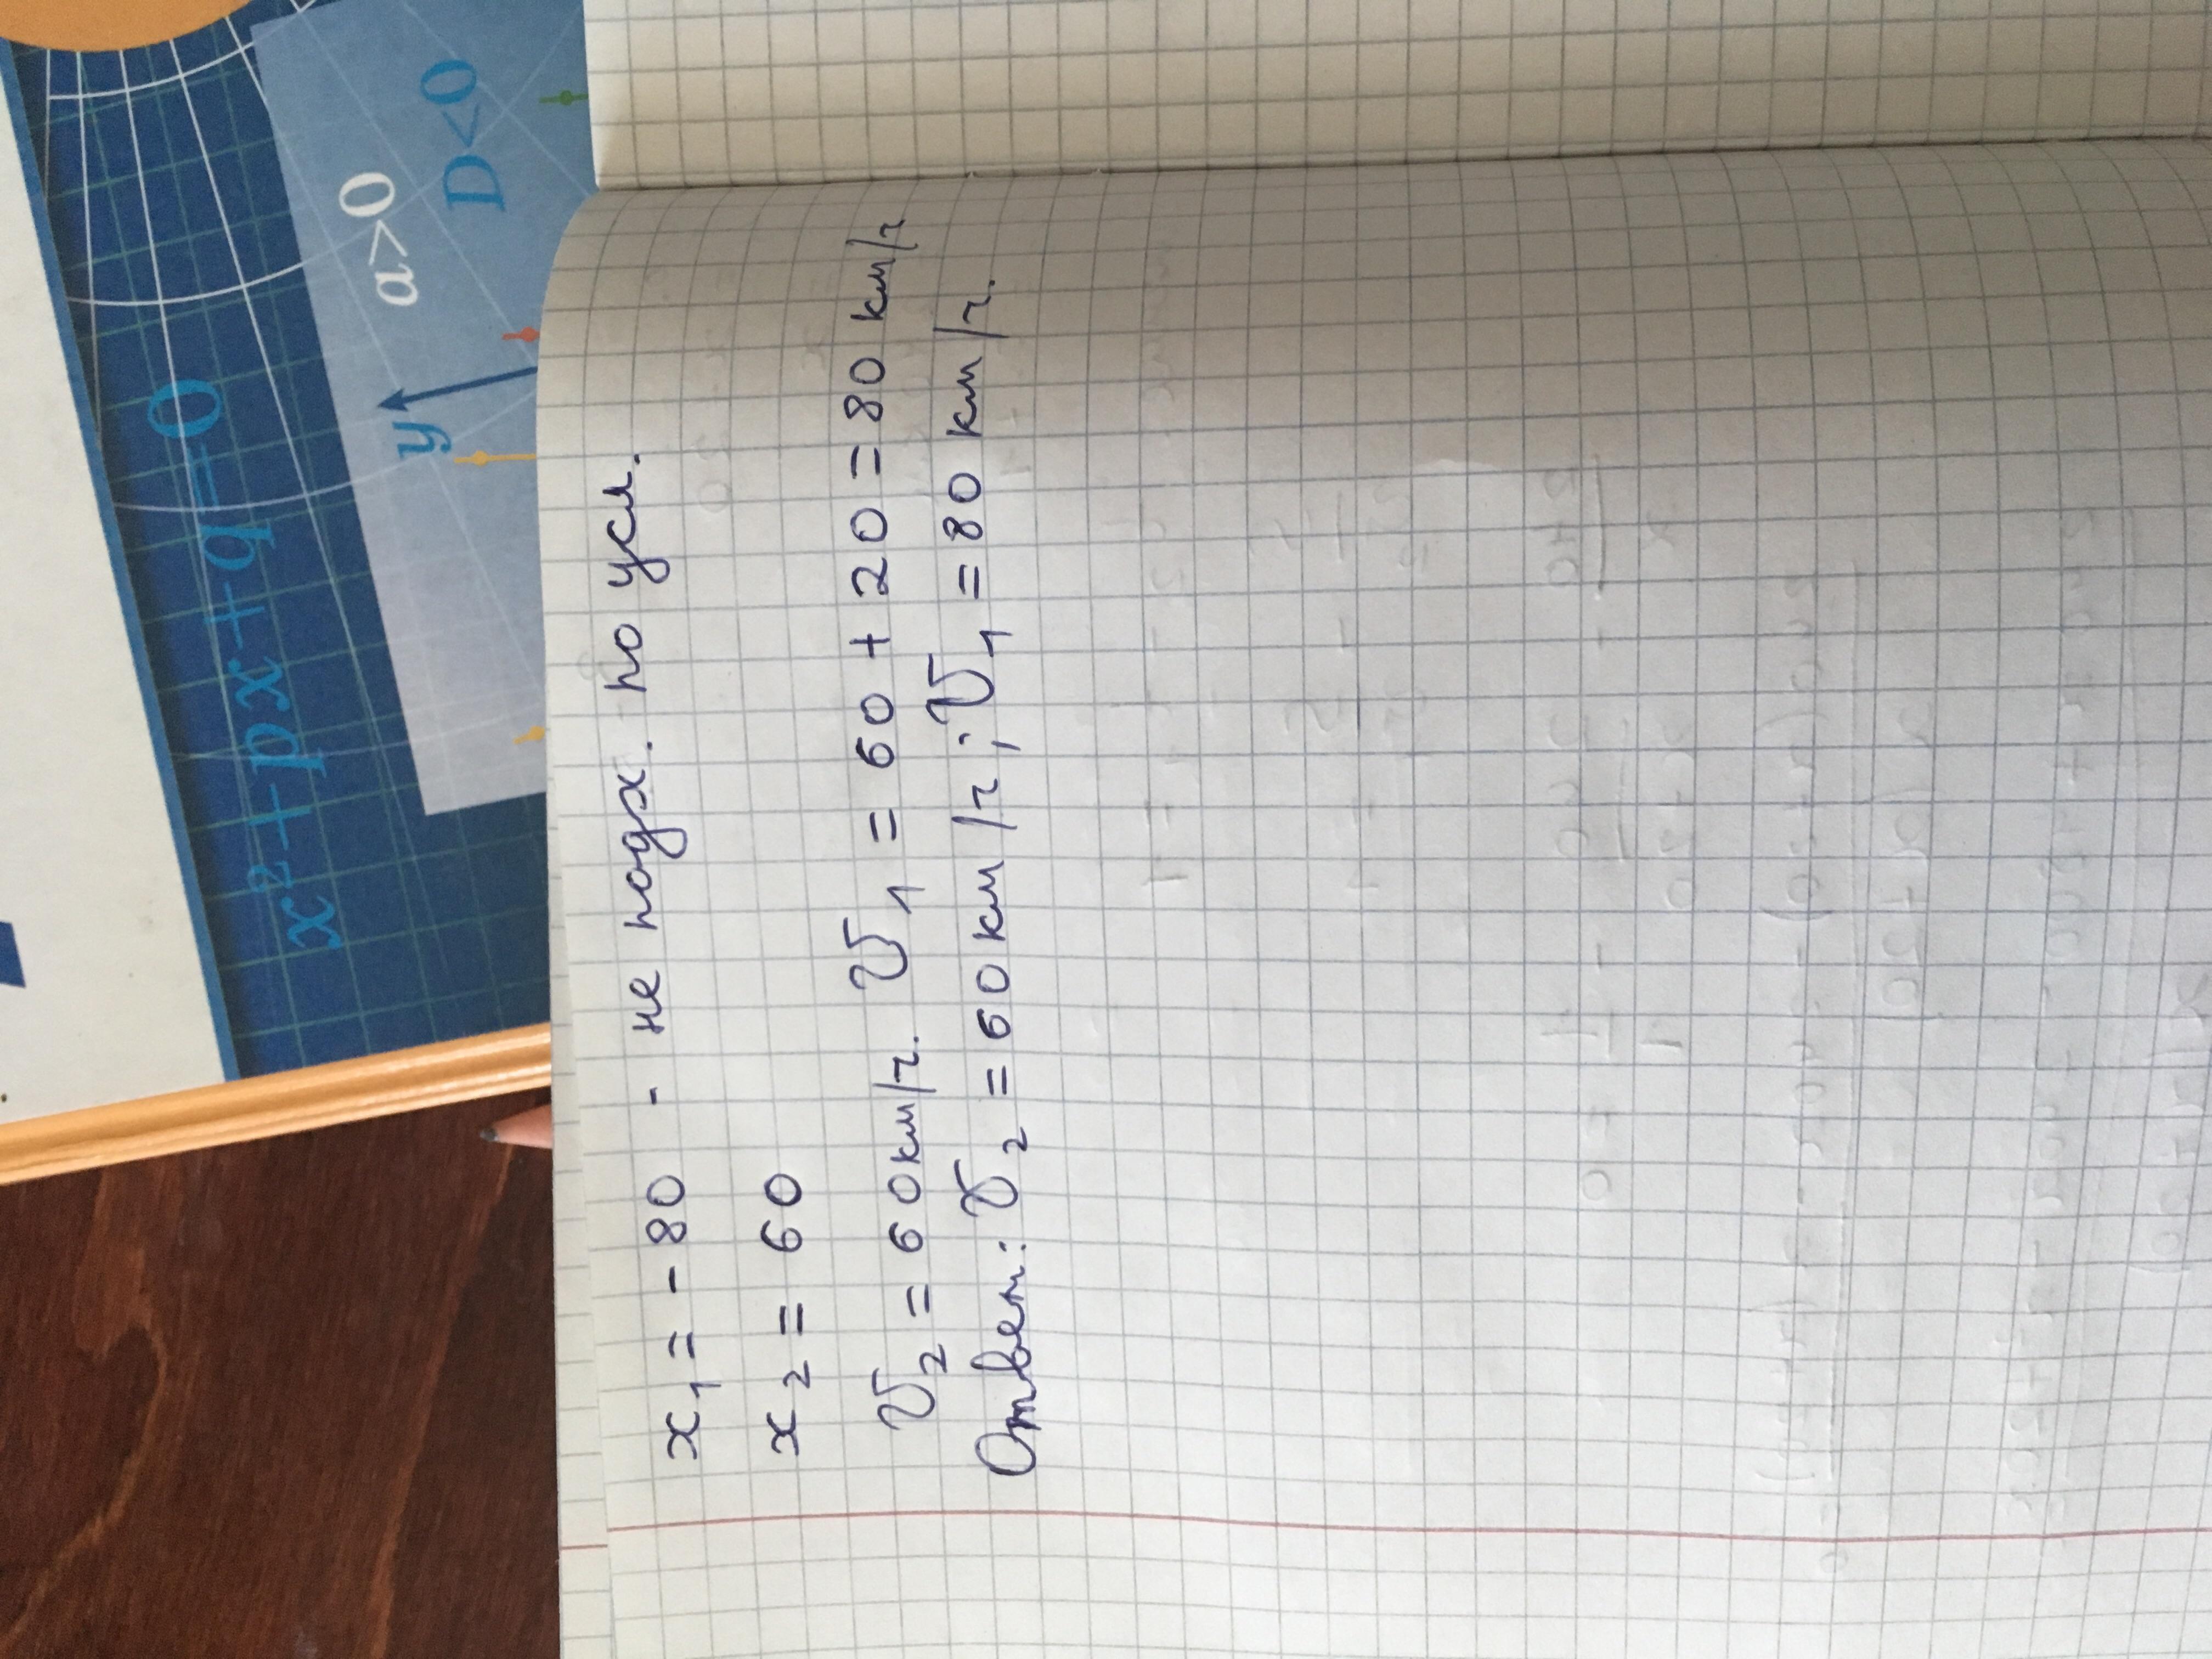 x² + px + q = 0
y
a>0
D<0
x₁ = -80 - не подх. по усл.
x₂ = 60
V₂ = 60 км/ч. V₁ = 60 + 20 = 80 км/ч
Ответ: V₂ = 60 км/ч; V₁ = 80 км/ч.